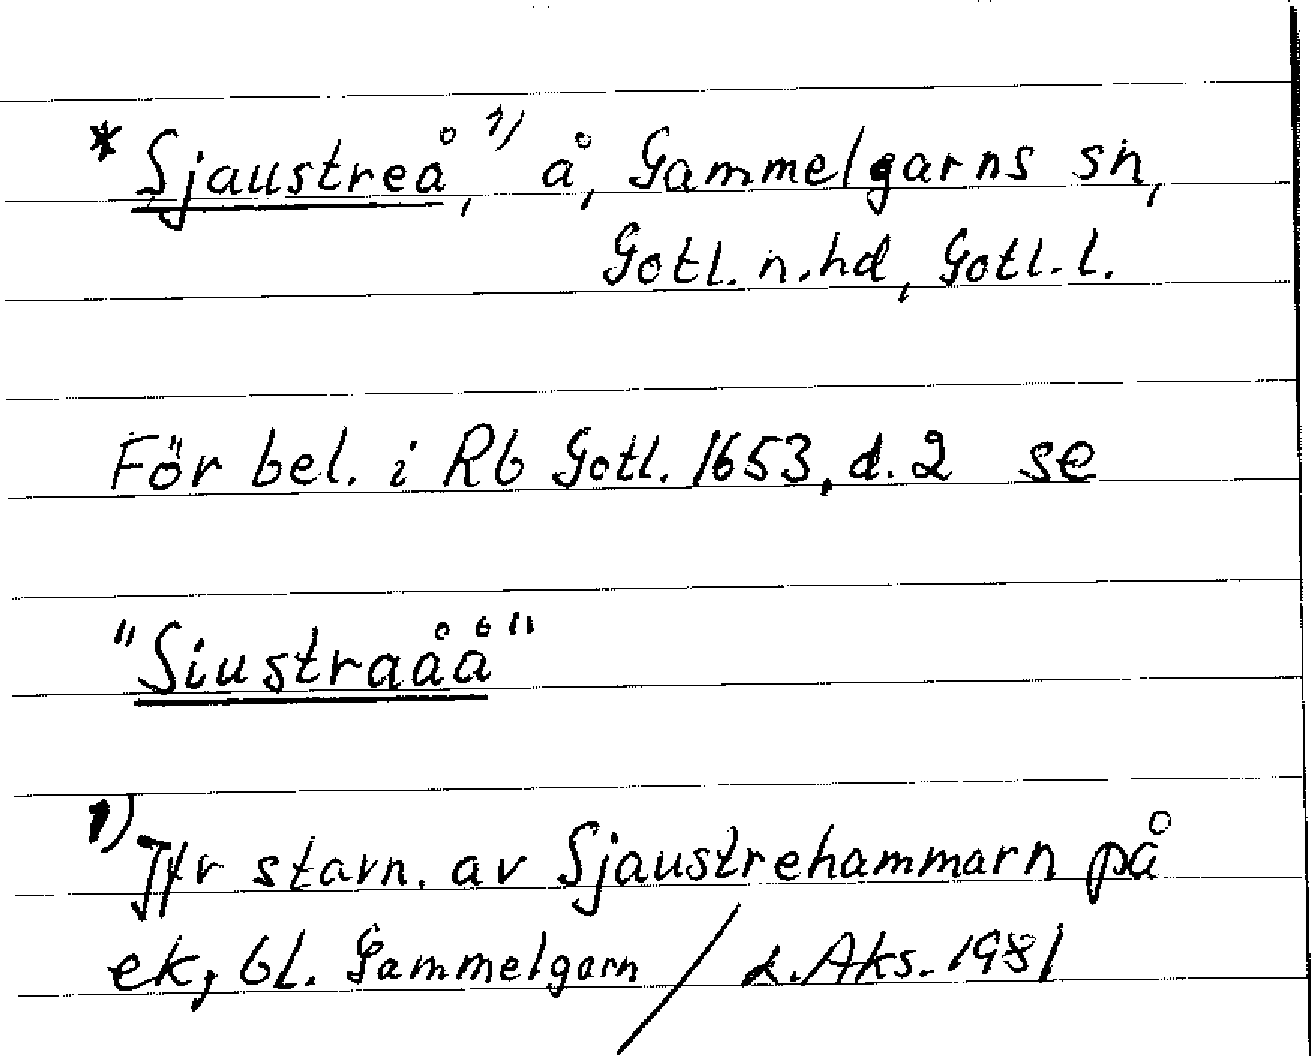 * Sjaustreå, ¹⁾ å, Gammelgarns sn,
Gotl. n. hd, Gotl. l.
För bel. i Rb Gotl. 1653, d. 2 se
"Siustraåå"
1) Jfr stavn. av Sjaustrehammarn på
ek, bl. Gammelgarn / L. Aks. 1981